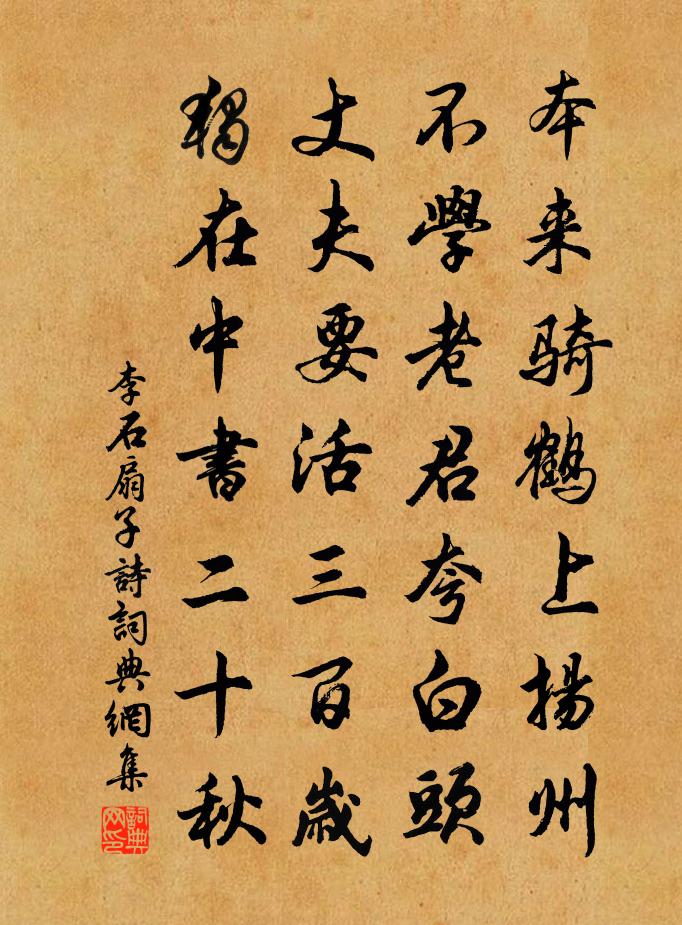 本来骑鹤上揚州
不學老君夸白頭
丈夫要活三百歲
獨在中書二十秋
李石扇子詩詞典網集
詞典网印